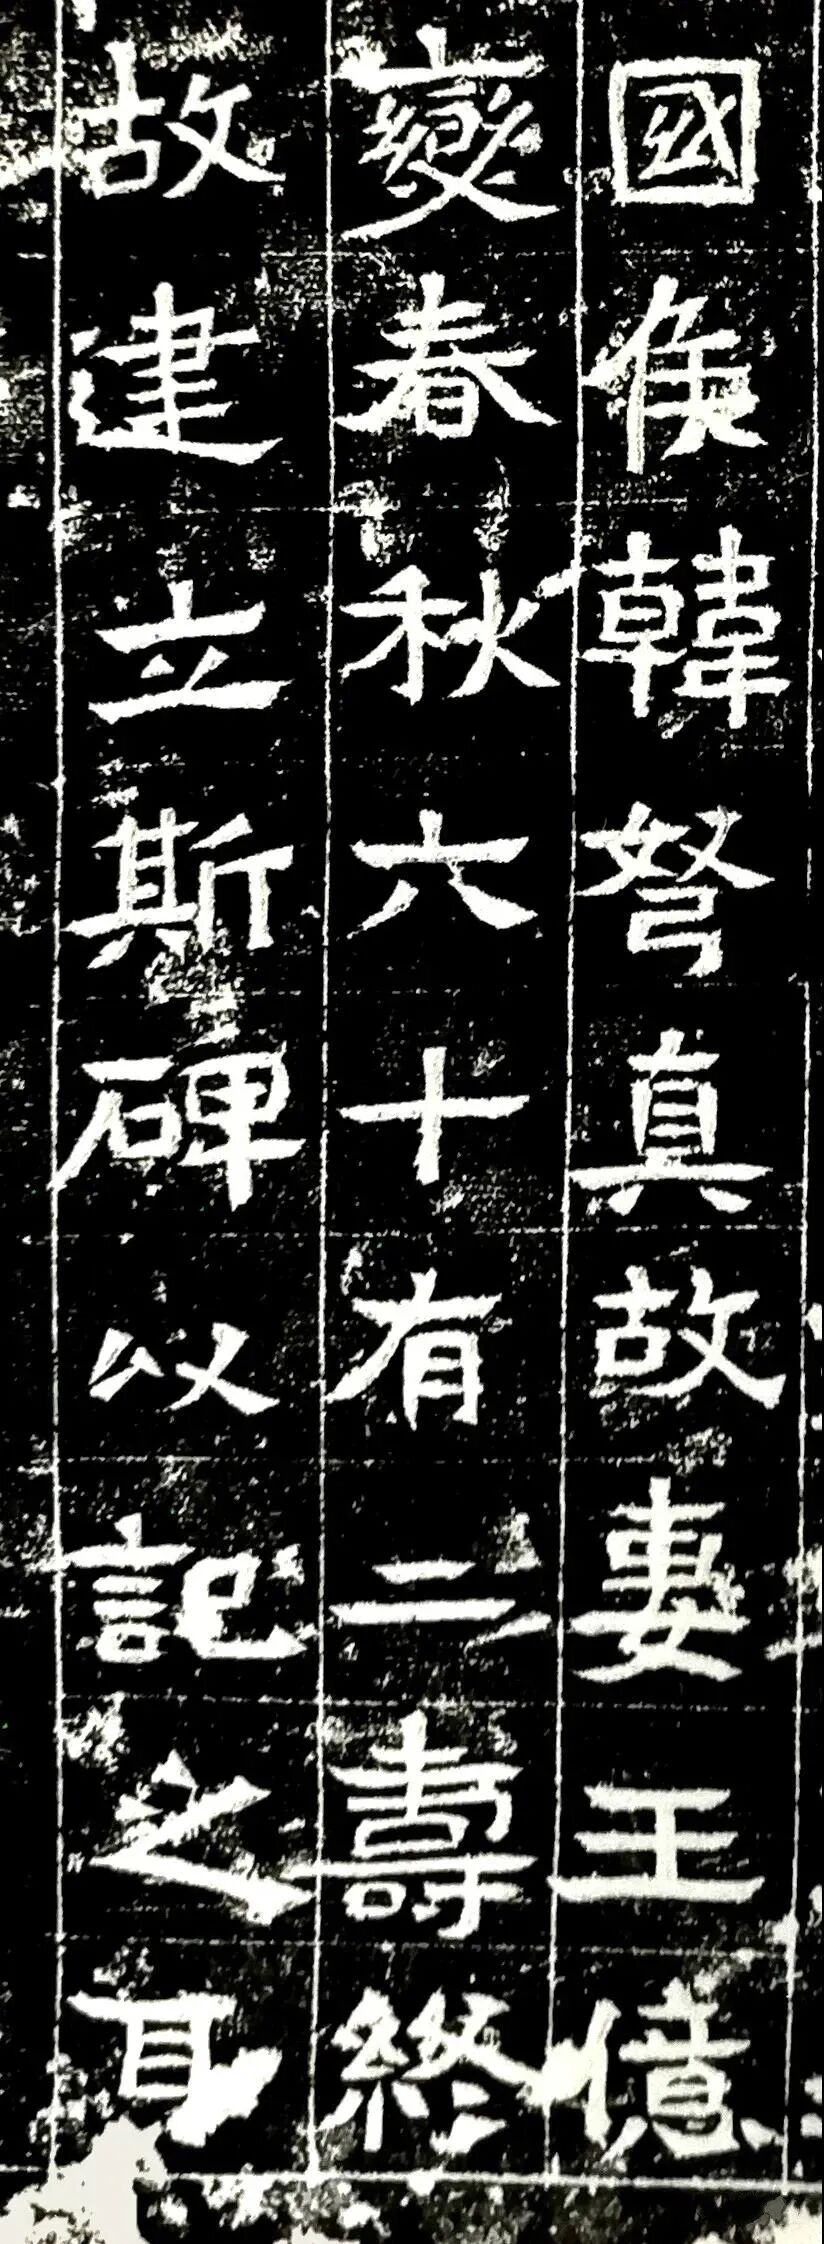 國侯韓弩真故妻王億
變春秋六十有二壽終
故建立斯碑以記之耳